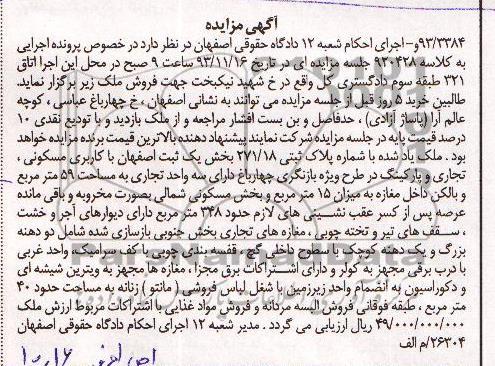 آگهی مزایده
۹۳/۳۳۸۴و-اجرای احکام شعبه ۱۲ دادگاه حقوقی اصفهان در نظر دارد در خصوص پرونده اجرایی
به کلاسه ۹۲۰۴۲۸ جلسه مزایده ای در تاریخ ۹۳/۱۱/۱۶ ساعت ۹ صبح در محل این اجرا اتاق
۳۲۱ طبقه سوم دادگستری کل واقع در خ شهید نیکبخت جهت فروش ملک زیر برگزار نماید.
طالبین خرید ۵ روز قبل از جلسه مزایده می توانند به نشانی اصفهان ، خ چهارباغ عباسی ، کوچه
عالم آرا (پاساژ آزادی) ، حدفاصل و بن بست افشار مراجعه و از ملک بازدید و با تودیع نقدی ۱۰
درصد قیمت پایه در جلسه مزایده شرکت نمایند پیشنهاد دهنده بالاترین قیمت برنده مزایده خواهد
بود . ملک یاد شده با شماره پلاک ثبتی ۲۷۱/۱۸ بخش یک ثبت اصفهان با کاربری مسکونی ،
تجاری و پارکینگ در طرح ویژه بازنگری چهارباغ دارای سه واحد تجاری به مساحت ۵۹ متر مربع
و بالکن داخل مغازه به میزان ۱۵ متر مربع و بخش مسکونی شمالی بصورت مخروبه و باقی مانده
عرصه پس از کسر عقب نشینی های لازم حدود ۳۴۸ متر مربع دارای دیوارهای آجر و خشت
، سقف های تیر و تخته چوبی ، مغازه های تجاری بخش جنوبی بازسازی شده شامل دو دهنه
بزرگ و یک دهنه کوچک با سطوح داخلی گچ ، قفسه بندی چوبی با کف سرامیک، واحد غربی
با درب برقی مجهز به کولر و دارای اشتراکات برق مجزا ، مغازه ها مجهز به ویترین شیشه ای
و دکوراسیون به انضمام واحد زیرزمین با شغل لباس فروشی ( مانتو ) زنانه به مساحت حدود ۴۰
متر مربع ، طبقه فوقانی فروش البسه مردانه و فروش مواد غذایی با اشتراکات مربوط ارزش ملک
۴۹/۰۰۰/۰۰۰/۰۰۰ ریال ارزیابی می گردد . مدیر شعبه ۱۲ اجرای احکام دادگاه حقوقی اصفهان
۲۶۳۰۴/م الف
۱۰،۱۶